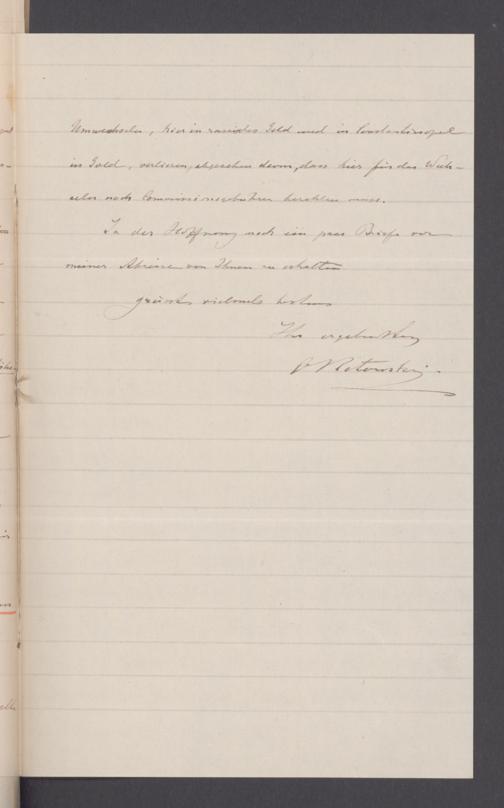 Umwechseln, hier in russisches Geld und in Constantinopel
in Gold, verlieren, abgesehen davon, dass hier für das Wech-
seln noch Commissionsgebühren bezahlen muss.
In der Hoffnung noch ein paar Briefe vor
meiner Abreise von Ihnen zu erhalten
grüsst vielmals bestens
Ihr ergebenster
O Retowski